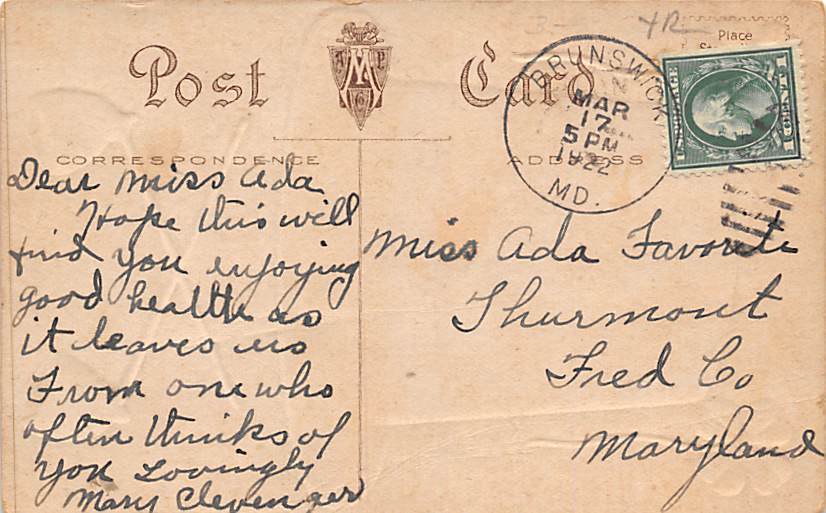 3- 4R-
Post Card
Place
CORRESPONDENCE
ADDRESS
BRUNSWICK
MAR
17
5 PM
1922
MD.
Dear Miss Ada
Hope this will
find you enjoying
good health as
it leaves us
From one who
often thinks of
you Lovingly
Mary Clevenger
Miss Ada Favorite
Thurmont
Fred Co
Maryland